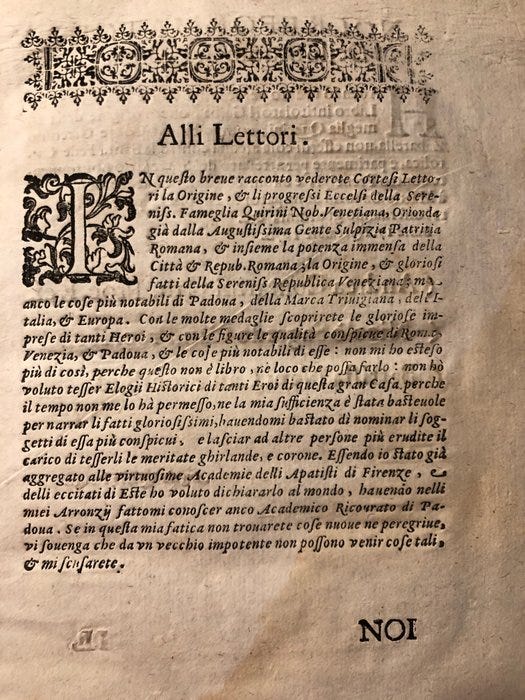 Alli Lettori.
IN questo breue racconto vederete Cortesi Letto-
ri la Origine, & li progressi Eccelsi della Sere-
niss. Fameglia Quirini Nob. Venetiana, Orionda
già dalla Augustissima Gente Sulpizia Patrizia
Romana, & insieme la potenza immensa della
Città & Repub. Romana; la Origine, & gloriosi
fatti della Sereniss Republica Veneziana; mà
anco le cose più notabili di Padoua, della Marca Triuigiana, dell'I-
talia, & Europa. Con le molte medaglie scoprirete le gloriose im-
prese di tanti Heroi, & con le figure le qualità conspicue di Roma,
Venezia, & Padoua, & le cose più notabili di esse: non mi hò esteso
più di così, perche questo non è libro, nè loco che possa farlo: non hò
voluto tesser Elogii Historici di tanti Eroi di questa gran Casa, perche
il tempo non me lo hà permesso, ne la mia sufficienza è stata basteuole
per narrar li fatti gloriosissimi, hauendomi bastato di nominar li sog-
getti di essa più conspicui, e lasciar ad altre persone più erudite il
carico di tesserli le meritate ghirlande, e corone. Essendo io stato già
aggregato alle virtuosime Academie delli Apatisti di Firenze, e
delli eccitati di Este ho voluto dichiararlo al mondo, hauendo nelli
miei Arronzij fattomi conoscer anco Academico Ricourato di Pa-
doua. Se in questa mia fatica non trouarete cose nuoue ne peregriue,
vi souenga che da vn vecchio impotente non possono venir cose tali,
& mi scusarete.
NOI